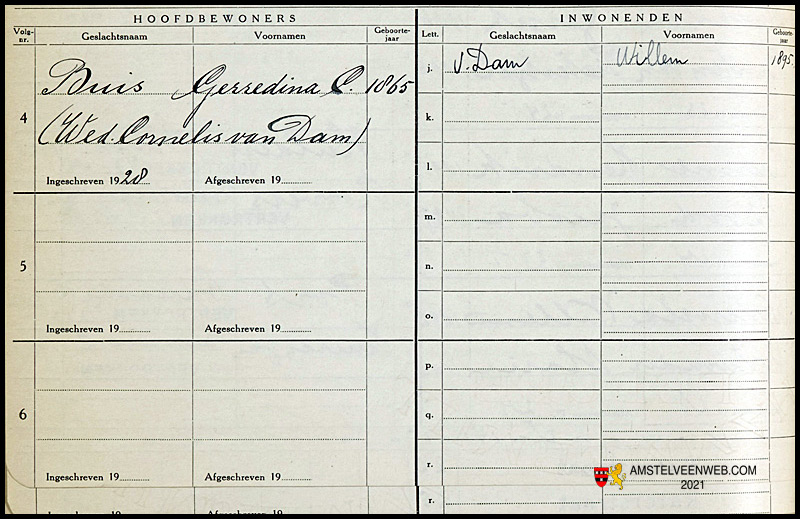 HOOFDBEWONERS INWONENDEN
Volg-nr. Geslachtsnaam Voornamen Geboorte-jaar Lett. Geslachtsnaam Voornamen Geboorte-jaar
4 Buis Gerredina C. 1865
(Wed. Cornelis van Dam)
Ingeschreven 1928 Afgeschreven 19
j. v. Dam Willem 1895
k.
l.
5
Ingeschreven 19 Afgeschreven 19
m.
n.
o.
6
Ingeschreven 19 Afgeschreven 19
p.
q.
r.
AMSTELVEENWEB.COM
2021
r.